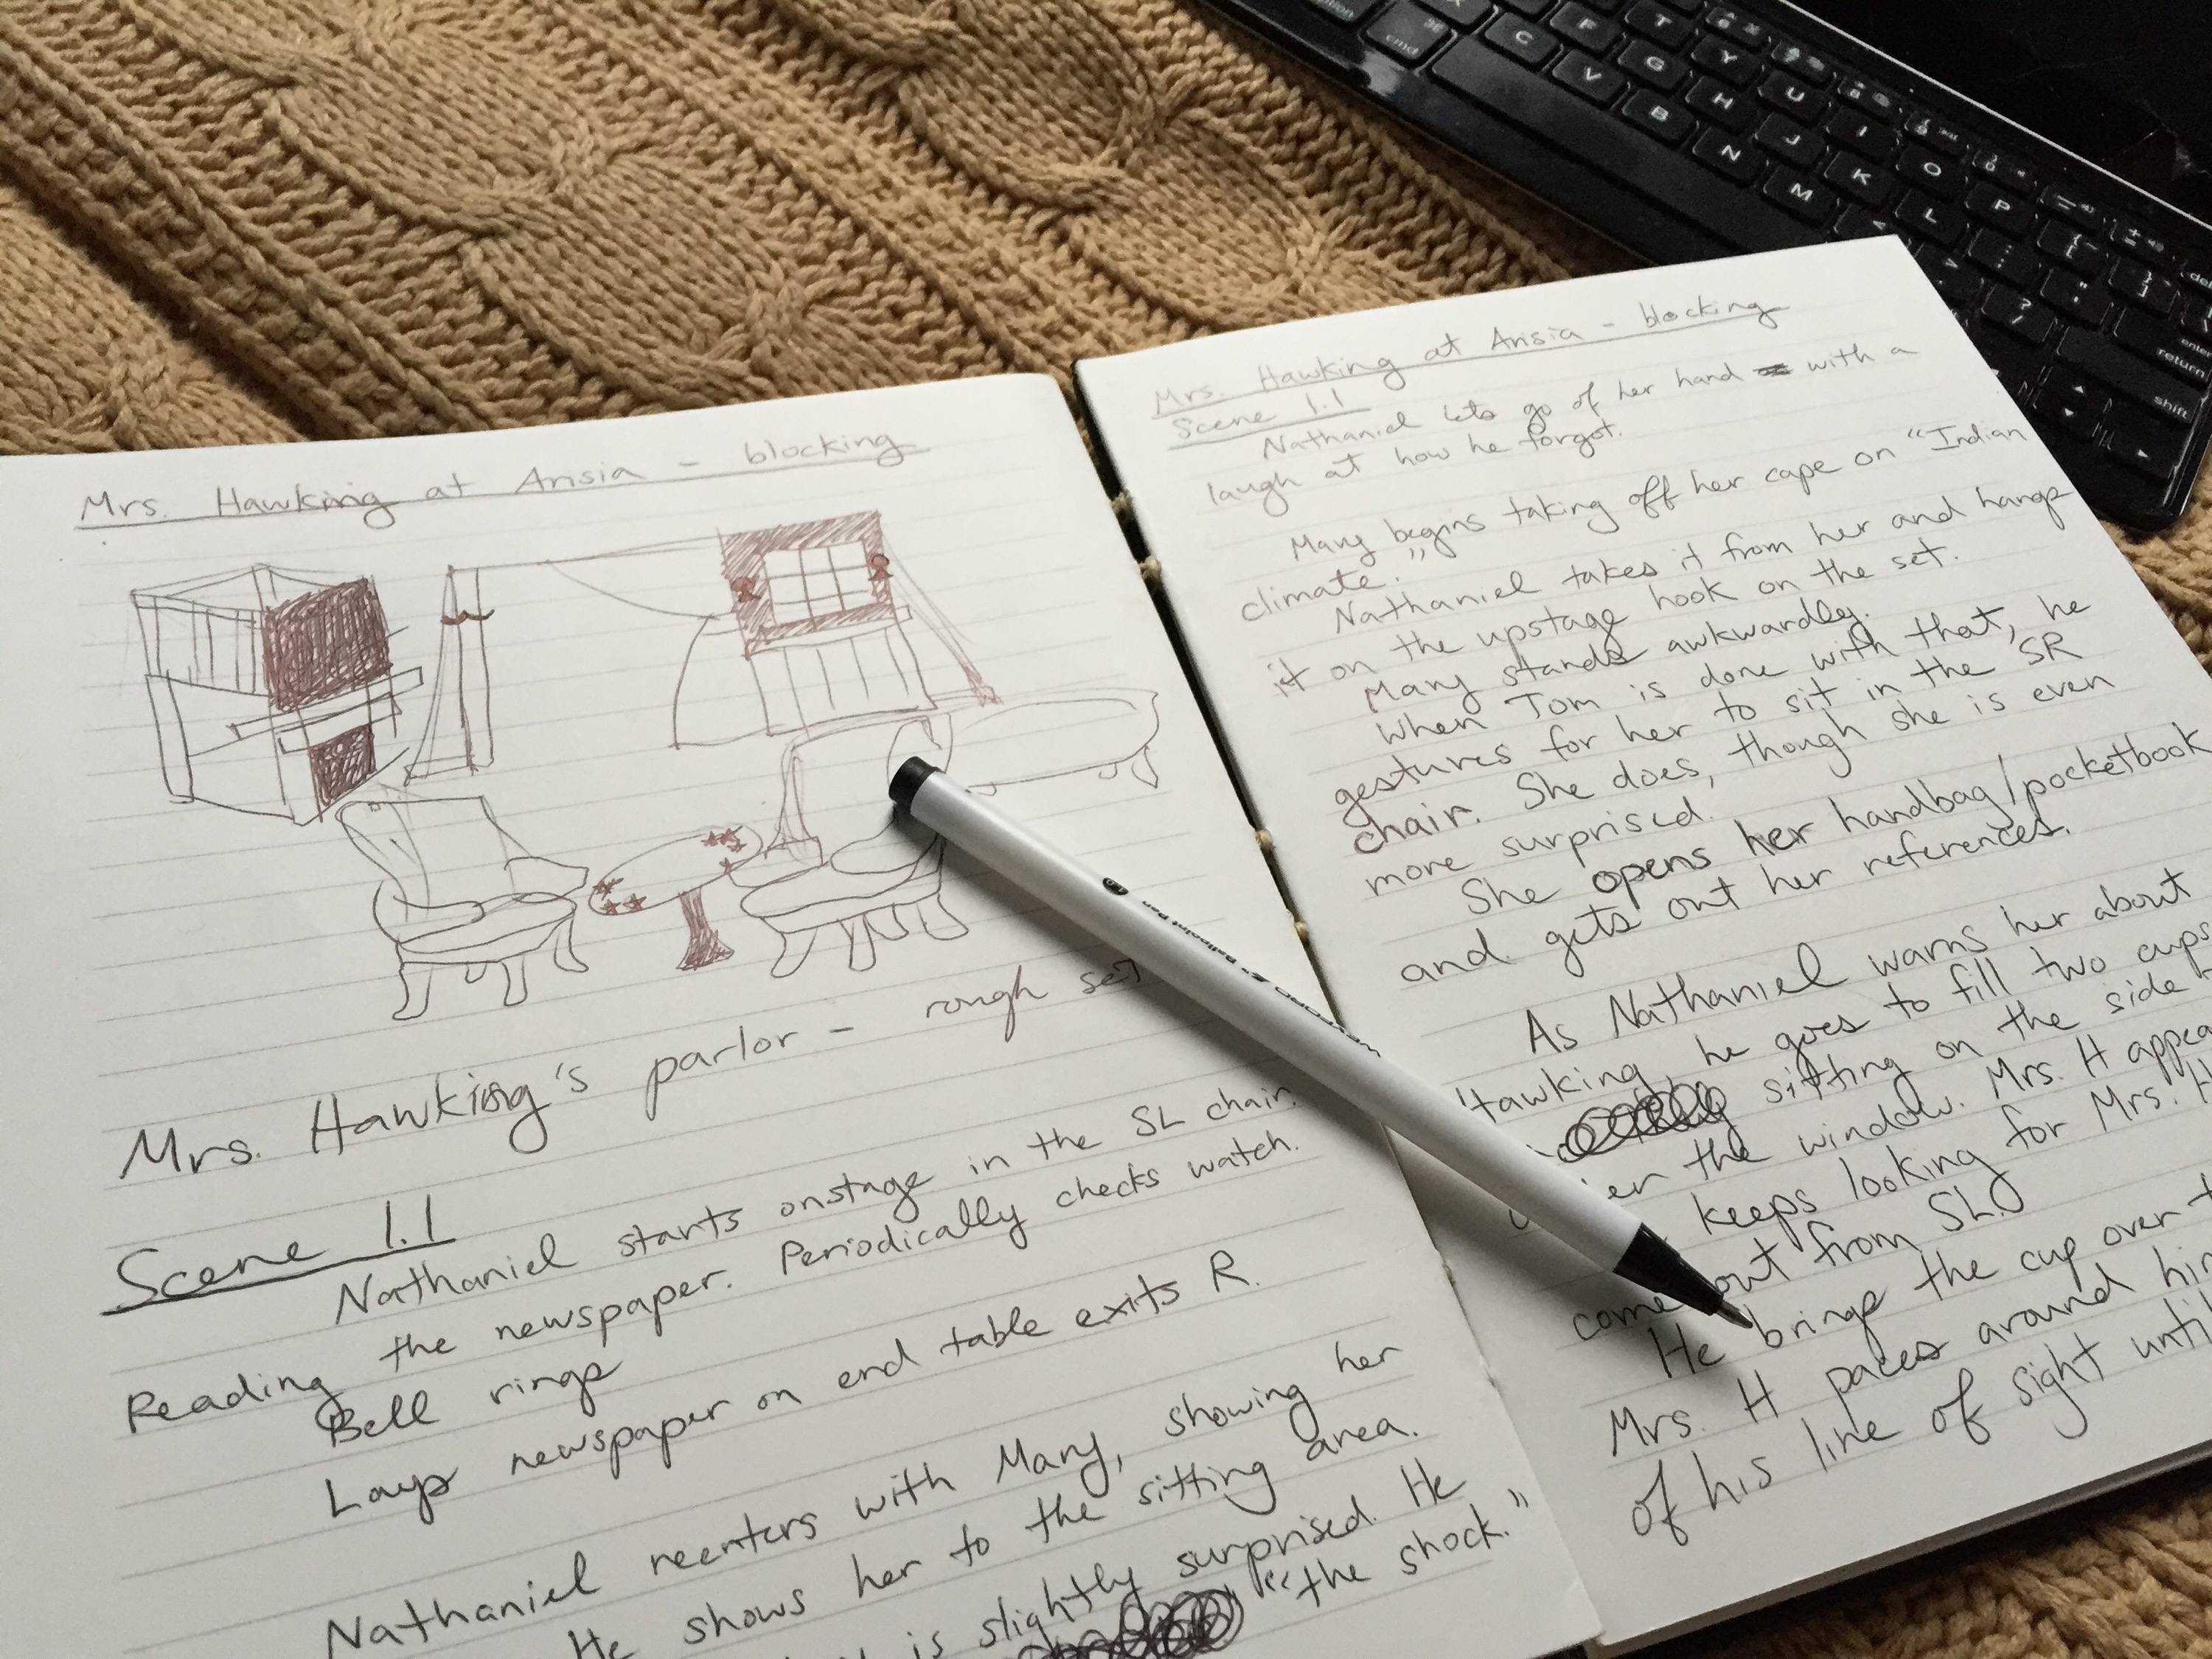 Mrs. Hawking at Arisia - blocking
Mrs. Hawking's parlor - rough set
Scene 1.1
Nathaniel starts onstage in the SL chair.
Reading the newspaper. Periodically checks watch.
Bell rings
Lays newspaper on end table exits R.
Nathaniel reenters with Mary, showing her
He shows her to the sitting area.
is slightly surprised. He
"the shock."
Mrs. Hawking at Arisia - blocking
Scene 1.1
Nathaniel lets go of her hand with a
laugh at how he forgot.
Mary begins taking off her cape on "Indian
climate."
Nathaniel takes it from her and hangs
it on the upstage hook on the set.
Mary stands awkwardly.
When Tom is done with that, he
gestures for her to sit in the SR
chair. She does, though she is even
more surprised.
She opens her handbag/pocketbook
and gets out her references.
As Nathaniel warns her about
Hawking, he goes to fill two cups
sitting on the side
the window. Mrs. H
keeps looking for Mrs. H
come out from SL.
He brings the cup over
Mrs. H paces around
of his line of sight until
option
cmd
C V B N M
F G H J K L
T Y U I O P
enter
return
shift